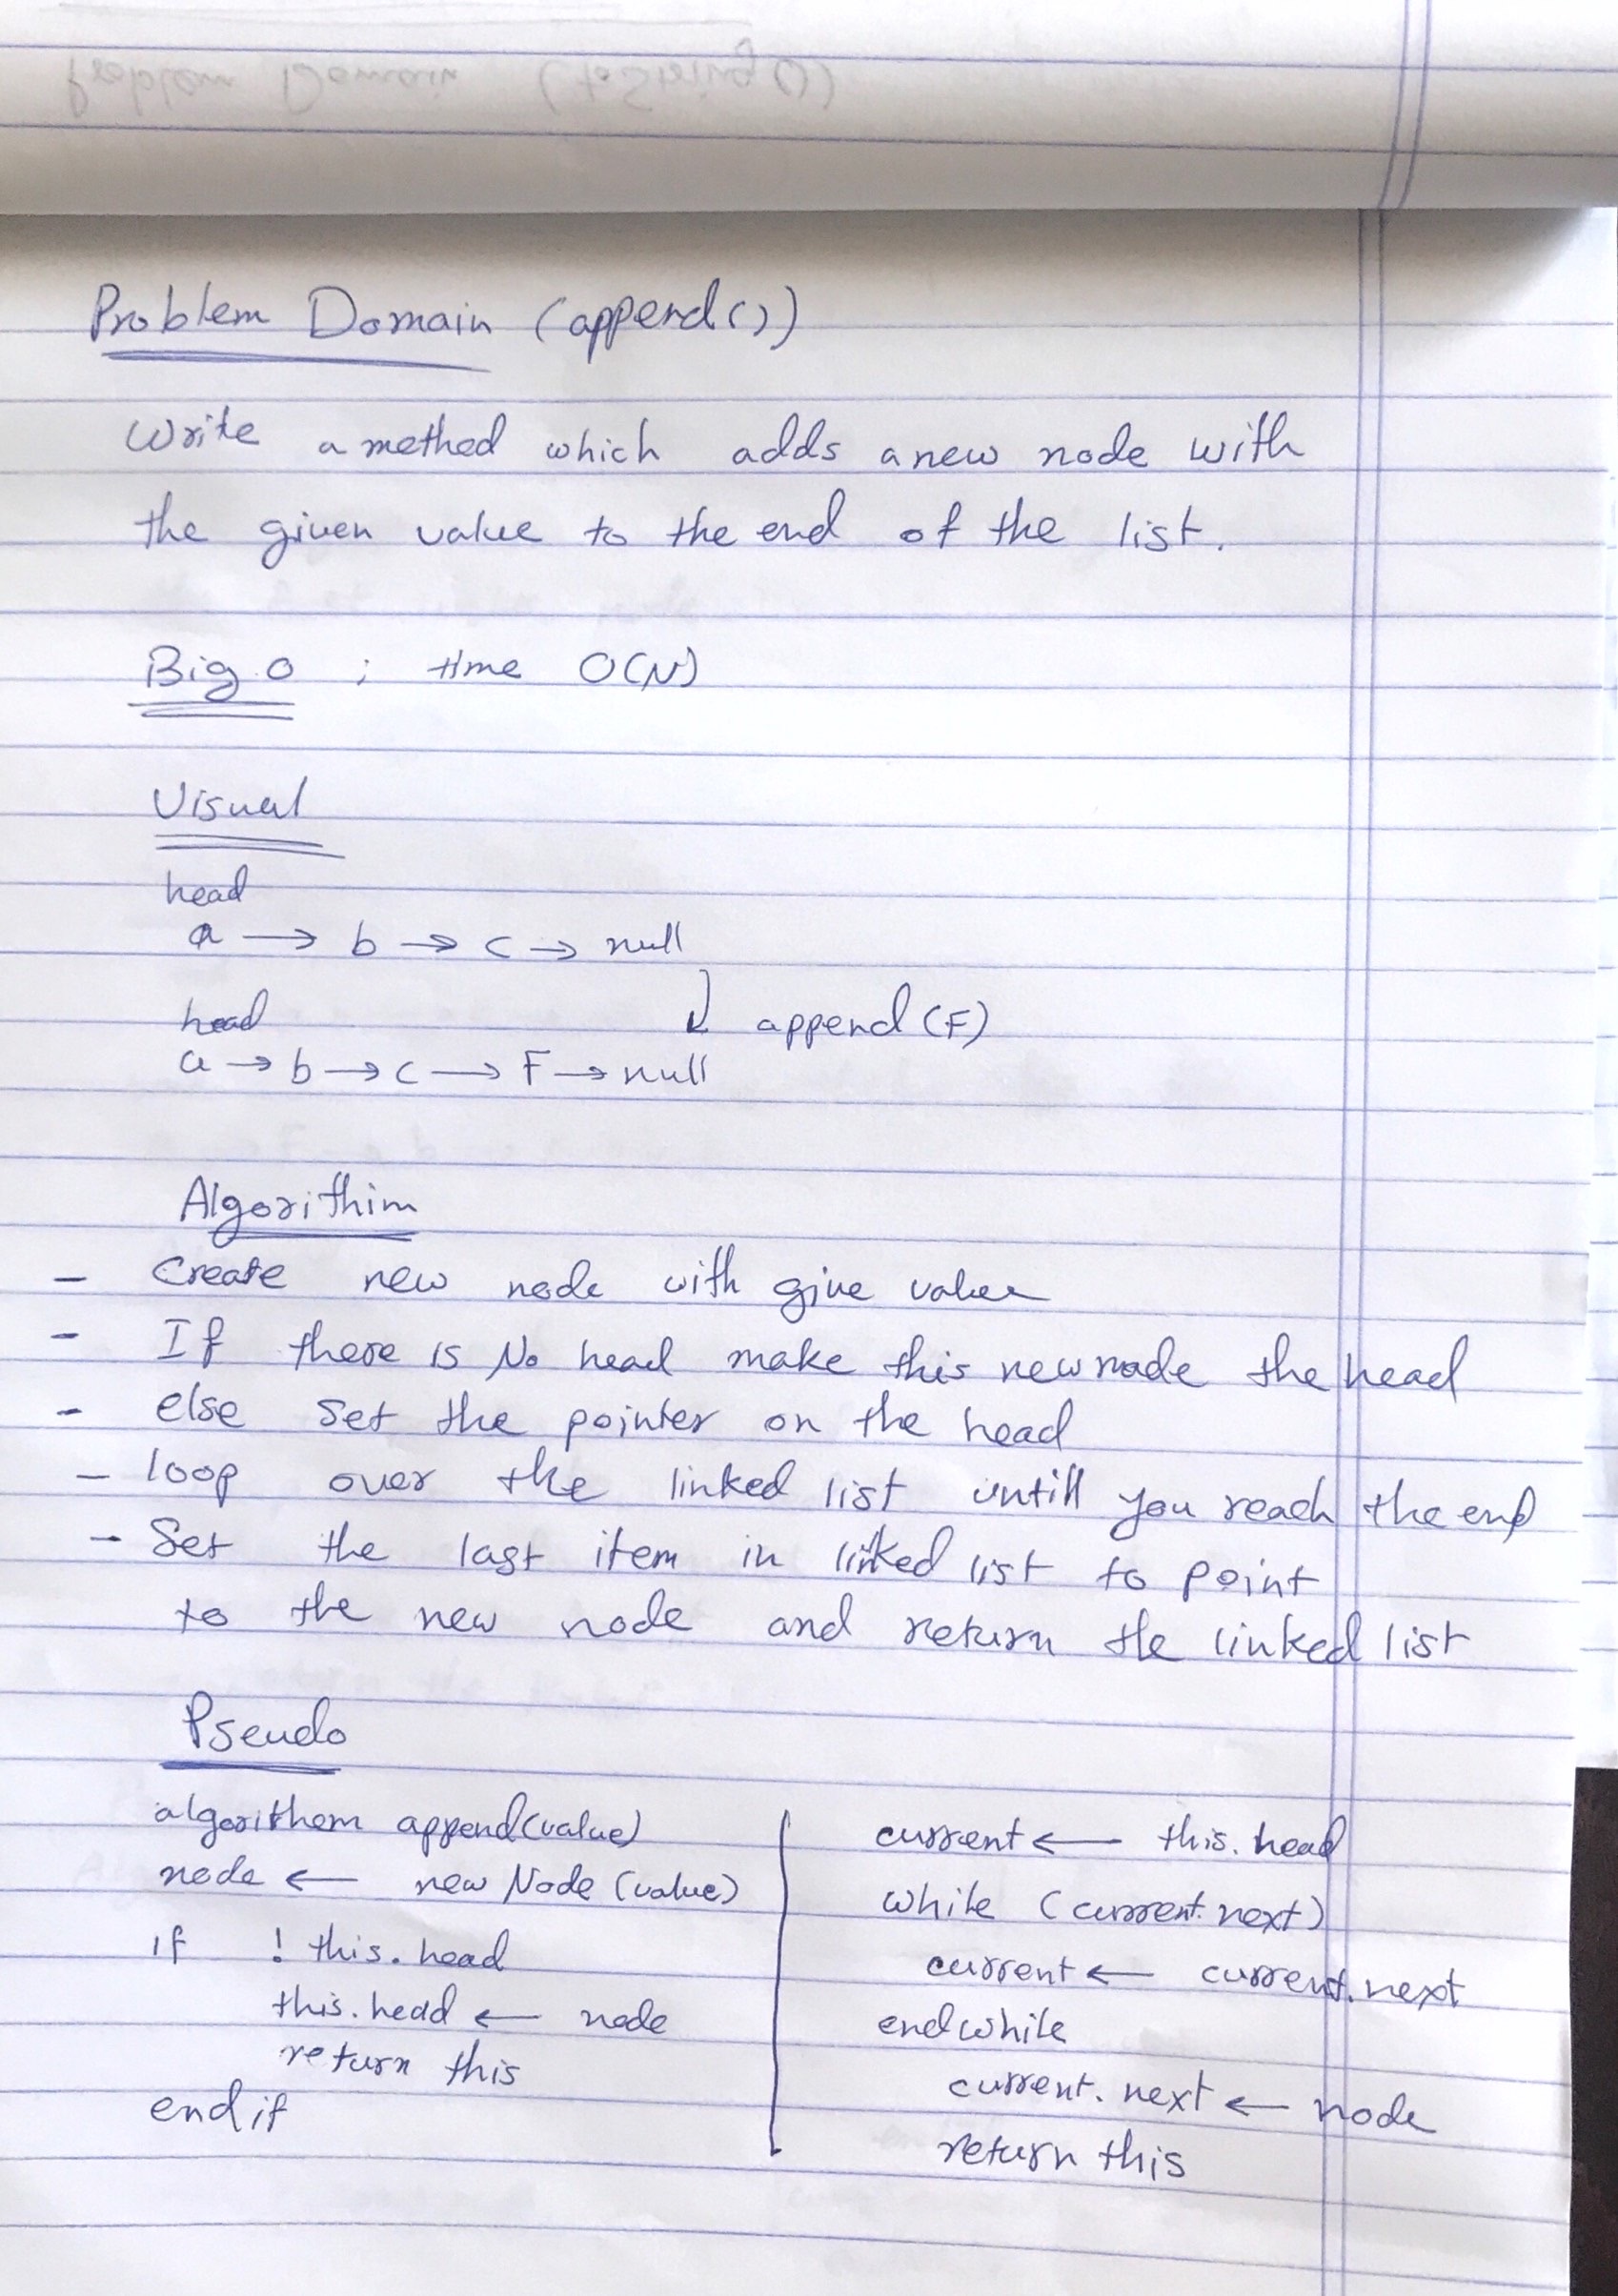 Problem Domain (toString())
Problem Domain (append())
Write a method which adds a new node with
the given value to the end of the list.
Big O ; time O(N)
Visual
head
a → b → c → null
↓ append(F)
head
a → b → c → F → null
Algorithim
- Create new node with give value
- If there is No head make this new node the head
- else set the pointer on the head
- loop over the linked list untill you reach the end
- Set the last item in linked list to point
to the new node and return the linked list
Pseudo
algorithem append(value)
node ← new Node (value)
if ! this.head
this.head ← node
return this
end if
current ← this.head
while (current.next)
current ← current.next
endwhile
current.next ← node
return this